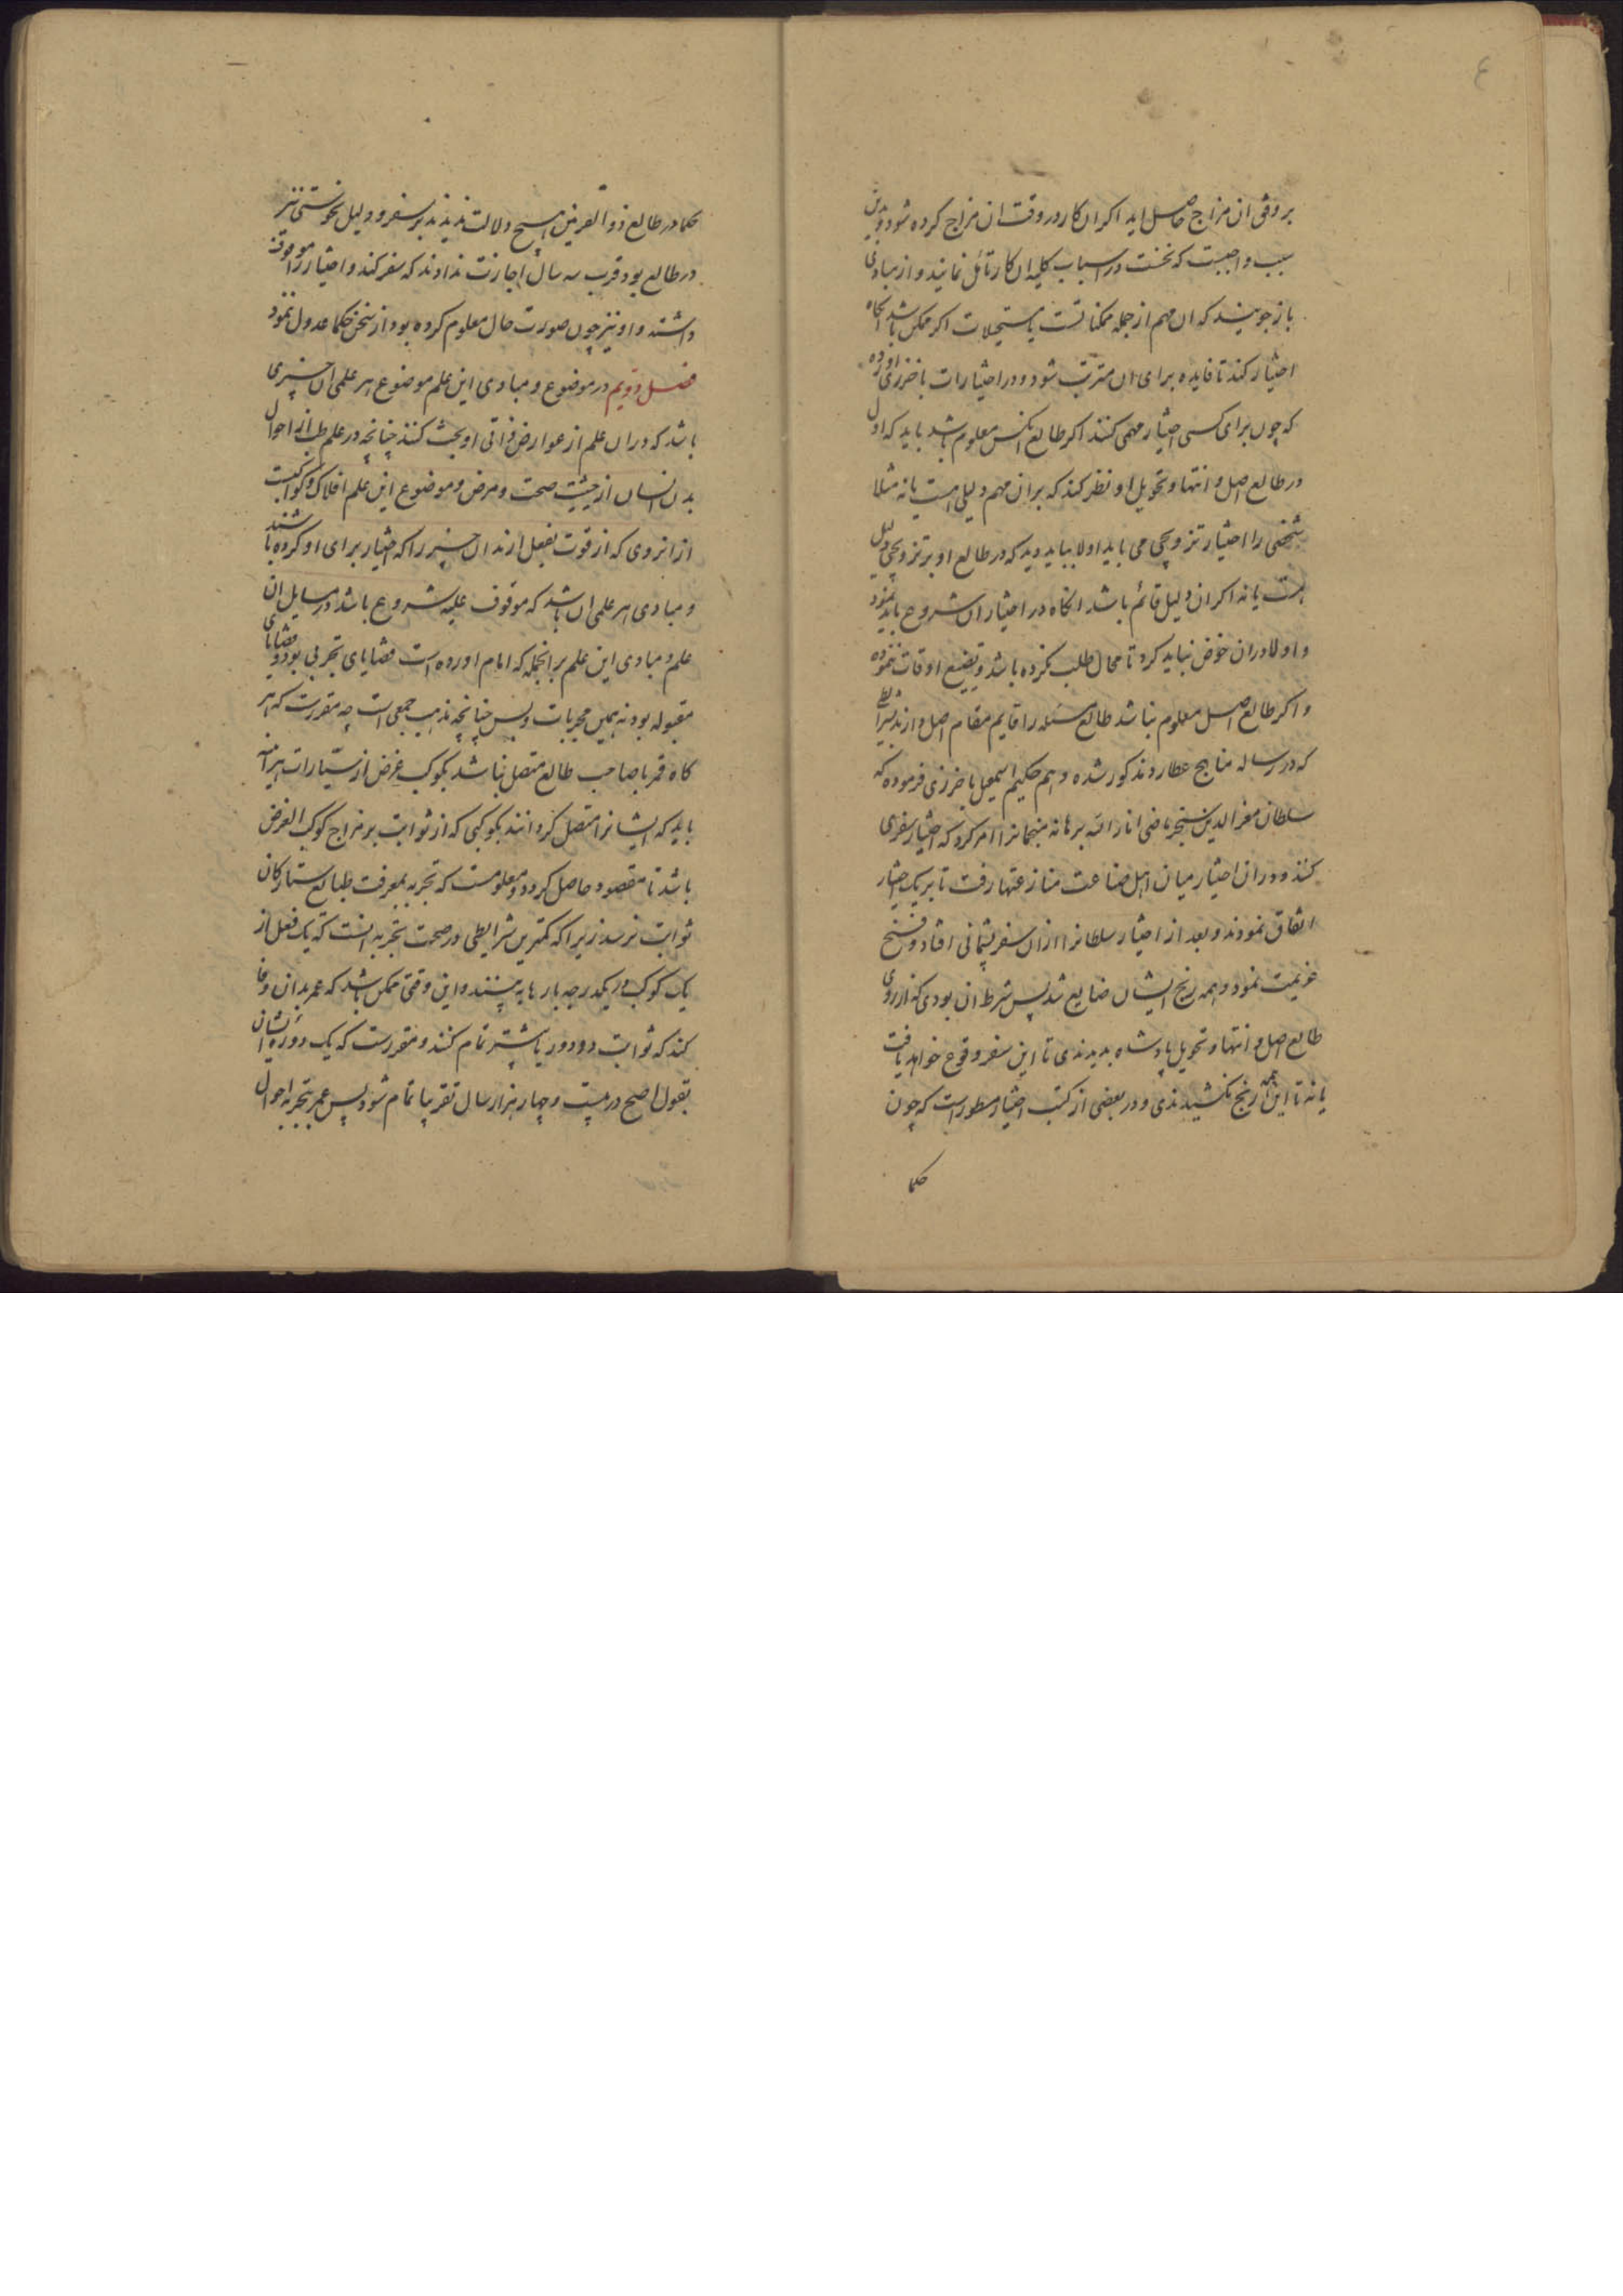 ٤
بر وفق ان مزاج حاصل اید اکر ان کار در وقت ان مزاج کرده شود و بدین
سبب واجبست که نخست در اسباب کلیه ان کار تأمل نمایند و از مبادی
باز جویند که ان مهم از جمله ممکناتست یا مستحیلات اکر ممکن باشد انکاه
اختیار کند تا فایده برای ان مترتب شود و در اختیارات باخرزی اورده
که چون برای کسی اختیار مهمی کنند اکر طالع انکس معلوم باشد باید که اول
در طالع اصل و انتها و تحویل او نظر کند که بران مهم دلیلی هست یا نه مثلا
شخصی را اختیار تزویجی می باید اولا بباید دید که در طالع او بر تزویجی دلیل
هست یا نه اکر ان دلیل قائم باشد انکاه در اختیار ان شروع باید نمود
و اولا دران خوض نباید کرد تا محال طلب نکرده باشد و تضییع اوقات ننموده
و اکر طالع اصل معلوم نباشد طالع مسئله را قایم مقام اصل دارند بشرایطی
که در رساله مناهج عطارد مذکور شده و هم حکیم اسمعیل باخرزی فرموده که
سلطان معز الدین سنجر ماضی انار الله برهانه منجمانرا امر کرد که اختیار سفری
کنند و دران اختیار میان اهل صناعت منازعتها رفت تا بر یک اختیار
اتفاق نمودند و بعد از اختیار سلطانرا ازان سفر پشیمانی افتاد و فسخ
عزیمت نمود و همه رنج ایشان ضایع شد پس شرط ان بودی که از روی
طالع اصل و انتها و تحویل پادشاه بدیدندی تا این سفر وقوع خواهد یافت
یا نه تا این همه رنج نکشیدندی و در بعضی از کتب اختیار مسطور است که چون
حکما
حکما در طالع ذو القرنین هیچ دلالت ندیدند بر سفر و دلیل نحوستی نیز
در طالع بود قرب سه سال اجازت ندادند که سفر کند و اختیار را موقوف
داشتند و او نیز چون صورت حال معلوم کرده بود از سخن حکما عدول ننمود
فصل دویم در موضوع و مبادی این علم موضوع هر علمی ان چیزی
باشد که دران علم از عوارض ذاتی او بحث کنند چنانچه در علم طب از احوال
بدن انسان از حیثیت صحت و مرض و موضوع این علم افلاک و کواکبست
از انروی که از قوت بفعل ارند ان چیز را که اختیار برای او کرده باشند
و مبادی هر علمی ان باشد که موقوف علیه شروع باشد در مسایل ان
علم و مبادی این علم بر انجمله که امام اورده است قضایای تجربی بود و قضایای
مقبوله بود نه همین مجربات و بس چنانچه مذهب جمعی است چه مقررست که هر
کاه قمر با صاحب طالع متصل نباشد بکوکب غرض از سیارات هراینه
باید که ایشانرا متصل کردانند بکوکبی که از ثوابت بر مزاج کوکب الغرض
باشد تا مقصود حاصل کردد و معلومست که تجربه بمعرفت طبایع ستارکان
ثوابت نرسد زیرا که کمترین شرایطی در صحت تجربه انست که یک فعل از
یک کوکب در یکدرجه بارها به بینند و این وقتی ممکن باشد که عمر بدان وفا
کند که ثوابت دو دور یا بیشتر تمام کنند و مقررست که یک دوره ایشان
بقول اصح در بیست و چهار هزار سال تقریبا تمام شود پس عمر بتجربه احوال